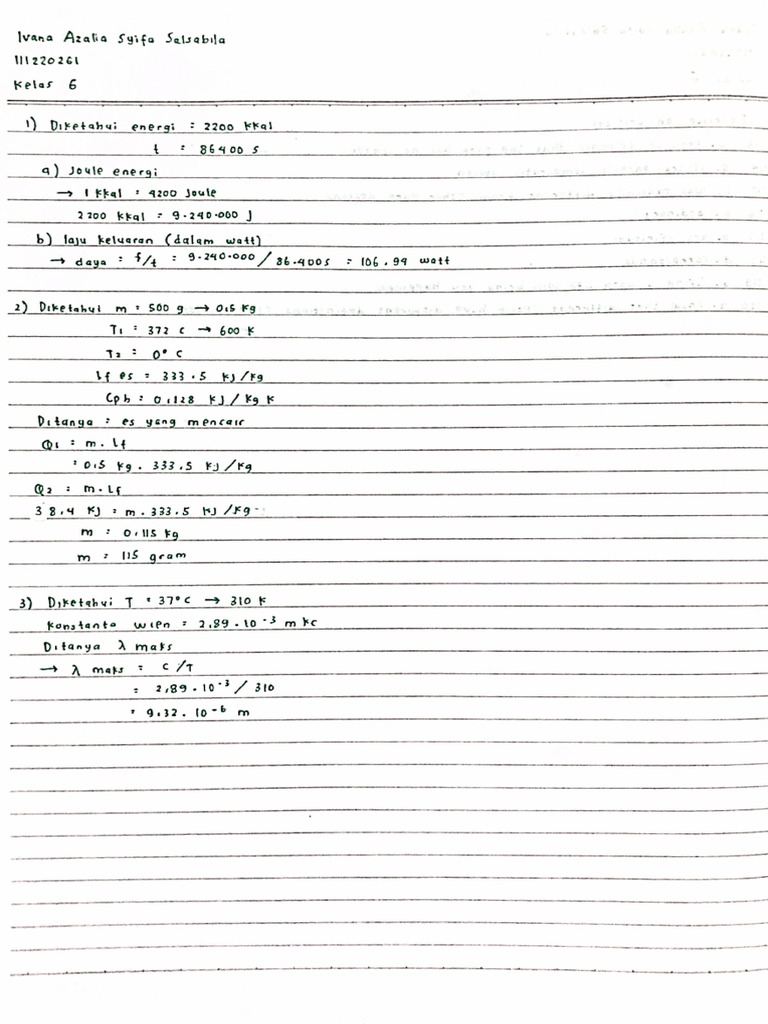 Ivana Azalia Syifa Salsabila
111220261
Kelas 6
1) Diketahui energi = 2200 kkal
t = 86400 s
a) Joule energi
→ 1 kkal = 4200 Joule
2200 kkal = 9.240.000 J
b) laju keluaran (dalam watt)
→ daya = f/t = 9.240.000 / 86.400s = 106,94 watt
2) Diketahui m = 500 g → 0,5 kg
T1 = 372 C → 600 K
T2 = 0° C
Lf es = 333.5 kJ/kg
Cpb = 0,128 kJ/kg K
Ditanya = es yang mencair
Q1 = m. Lf
= 0,5 kg. 333,5 kJ/kg
Q2 = m.Lf
38,4 kJ = m. 333.5 kJ/kg
m = 0,115 kg
m = 115 gram
3) Diketahui T = 37°C → 310 K
Konstanta wien = 2,89.10⁻³ m
Ditanya λ maks
→ λ maks = C/T
= 2,89.10⁻³ / 310
= 9,32.10⁻⁶ m